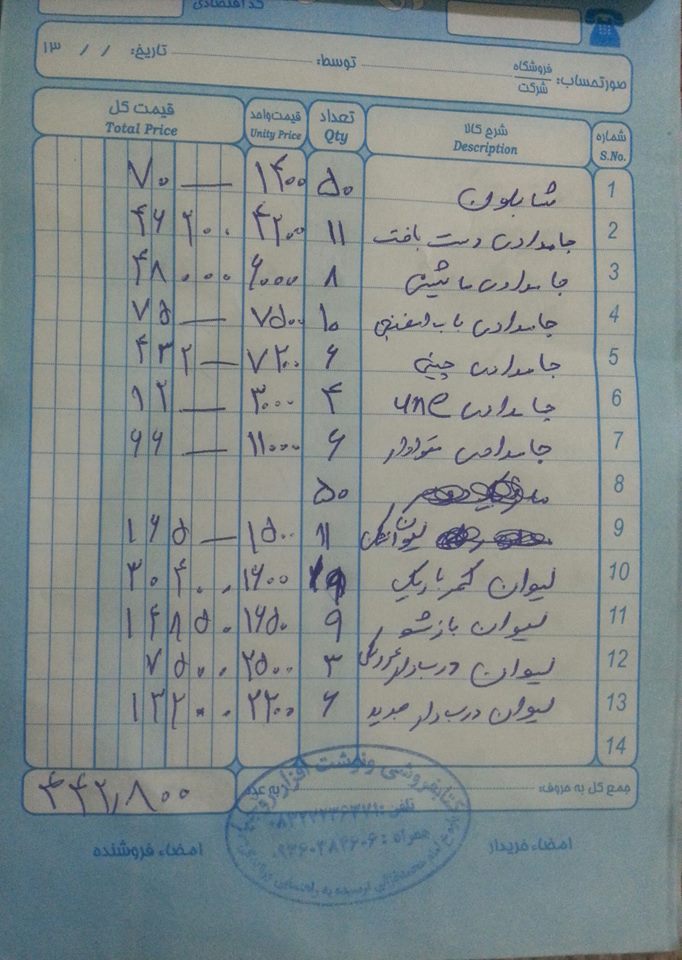 کد اقتصادی
صورتحساب: فروشگاه شرکت توسط: تاریخ: / / ۱۳
شماره S.No. شرح کالا Description تعداد Qty قیمت واحد Unity Price قیمت کل Total Price
1 شابلون ۵۰ ۱۴۰۰ ۷۰ —
2 جامدادی دست بافت ۱۱ ۴۲۰۰ ۴۶۲۰۰
3 جامدادی ماشینی ۸ ۶۰۰۰ ۴۸۰۰۰
4 جامدادی باب اسفنجی ۱۰ ۷۵۰۰ ۷۵ —
5 جامدادی چینی ۶ ۷۲۰۰ ۴۳۲ —
6 جامدادی une ۴ ۳۰۰۰ ۱۲ —
7 جامدادی ۶ ۱۱۰۰۰ ۶۶ —
8 ۵۰
9 لیوان ۱۱ ۱۵۰۰ ۱۶۵ —
10 لیوان کمر باریک ۱۹ ۱۶۰۰ ۳۰۴۰۰
11 لیوان بازشو ۹ ۱۶۵۰ ۱۴۸۵۰
12 لیوان دربدار ۳ ۲۵۰۰ ۷۵۰۰
13 لیوان دربدار جدید ۶ ۲۲۰۰ ۱۳۲۰۰
14
جمع کل به حروف: به عدد ۴۴۲,۸۰۰
امضاء خریدار امضاء فروشنده
کتابفروشی و نوشت افزار
تلفن:
همراه: